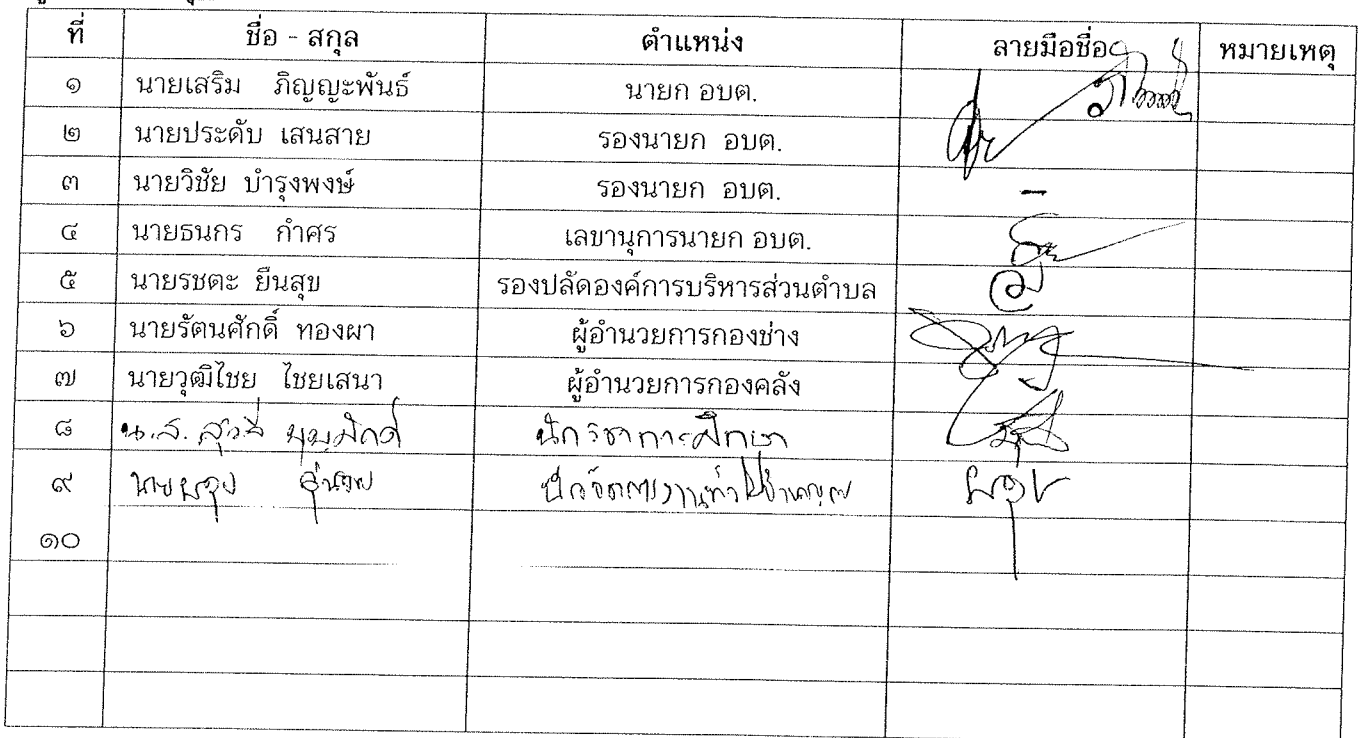 ที่ ชื่อ - สกุล ตำแหน่ง ลายมือชื่อ หมายเหตุ
๑ นายเสริม ภิญญะพันธ์ นายก อบต.
๒ นายประดับ เสนสาย รองนายก อบต.
๓ นายวิชัย บำรุงพงษ์ รองนายก อบต. -
๔ นายธนกร กำศร เลขานุการนายก อบต.
๕ นายรชตะ ยืนสุข รองปลัดองค์การบริหารส่วนตำบล
๖ นายรัตนศักดิ์ ทองผา ผู้อำนวยการกองช่าง
๗ นายวุฒิไชย ไชยเสนา ผู้อำนวยการกองคลัง
๘ น.ส. นักวิชาการศึกษา
๙ นาย
๑๐